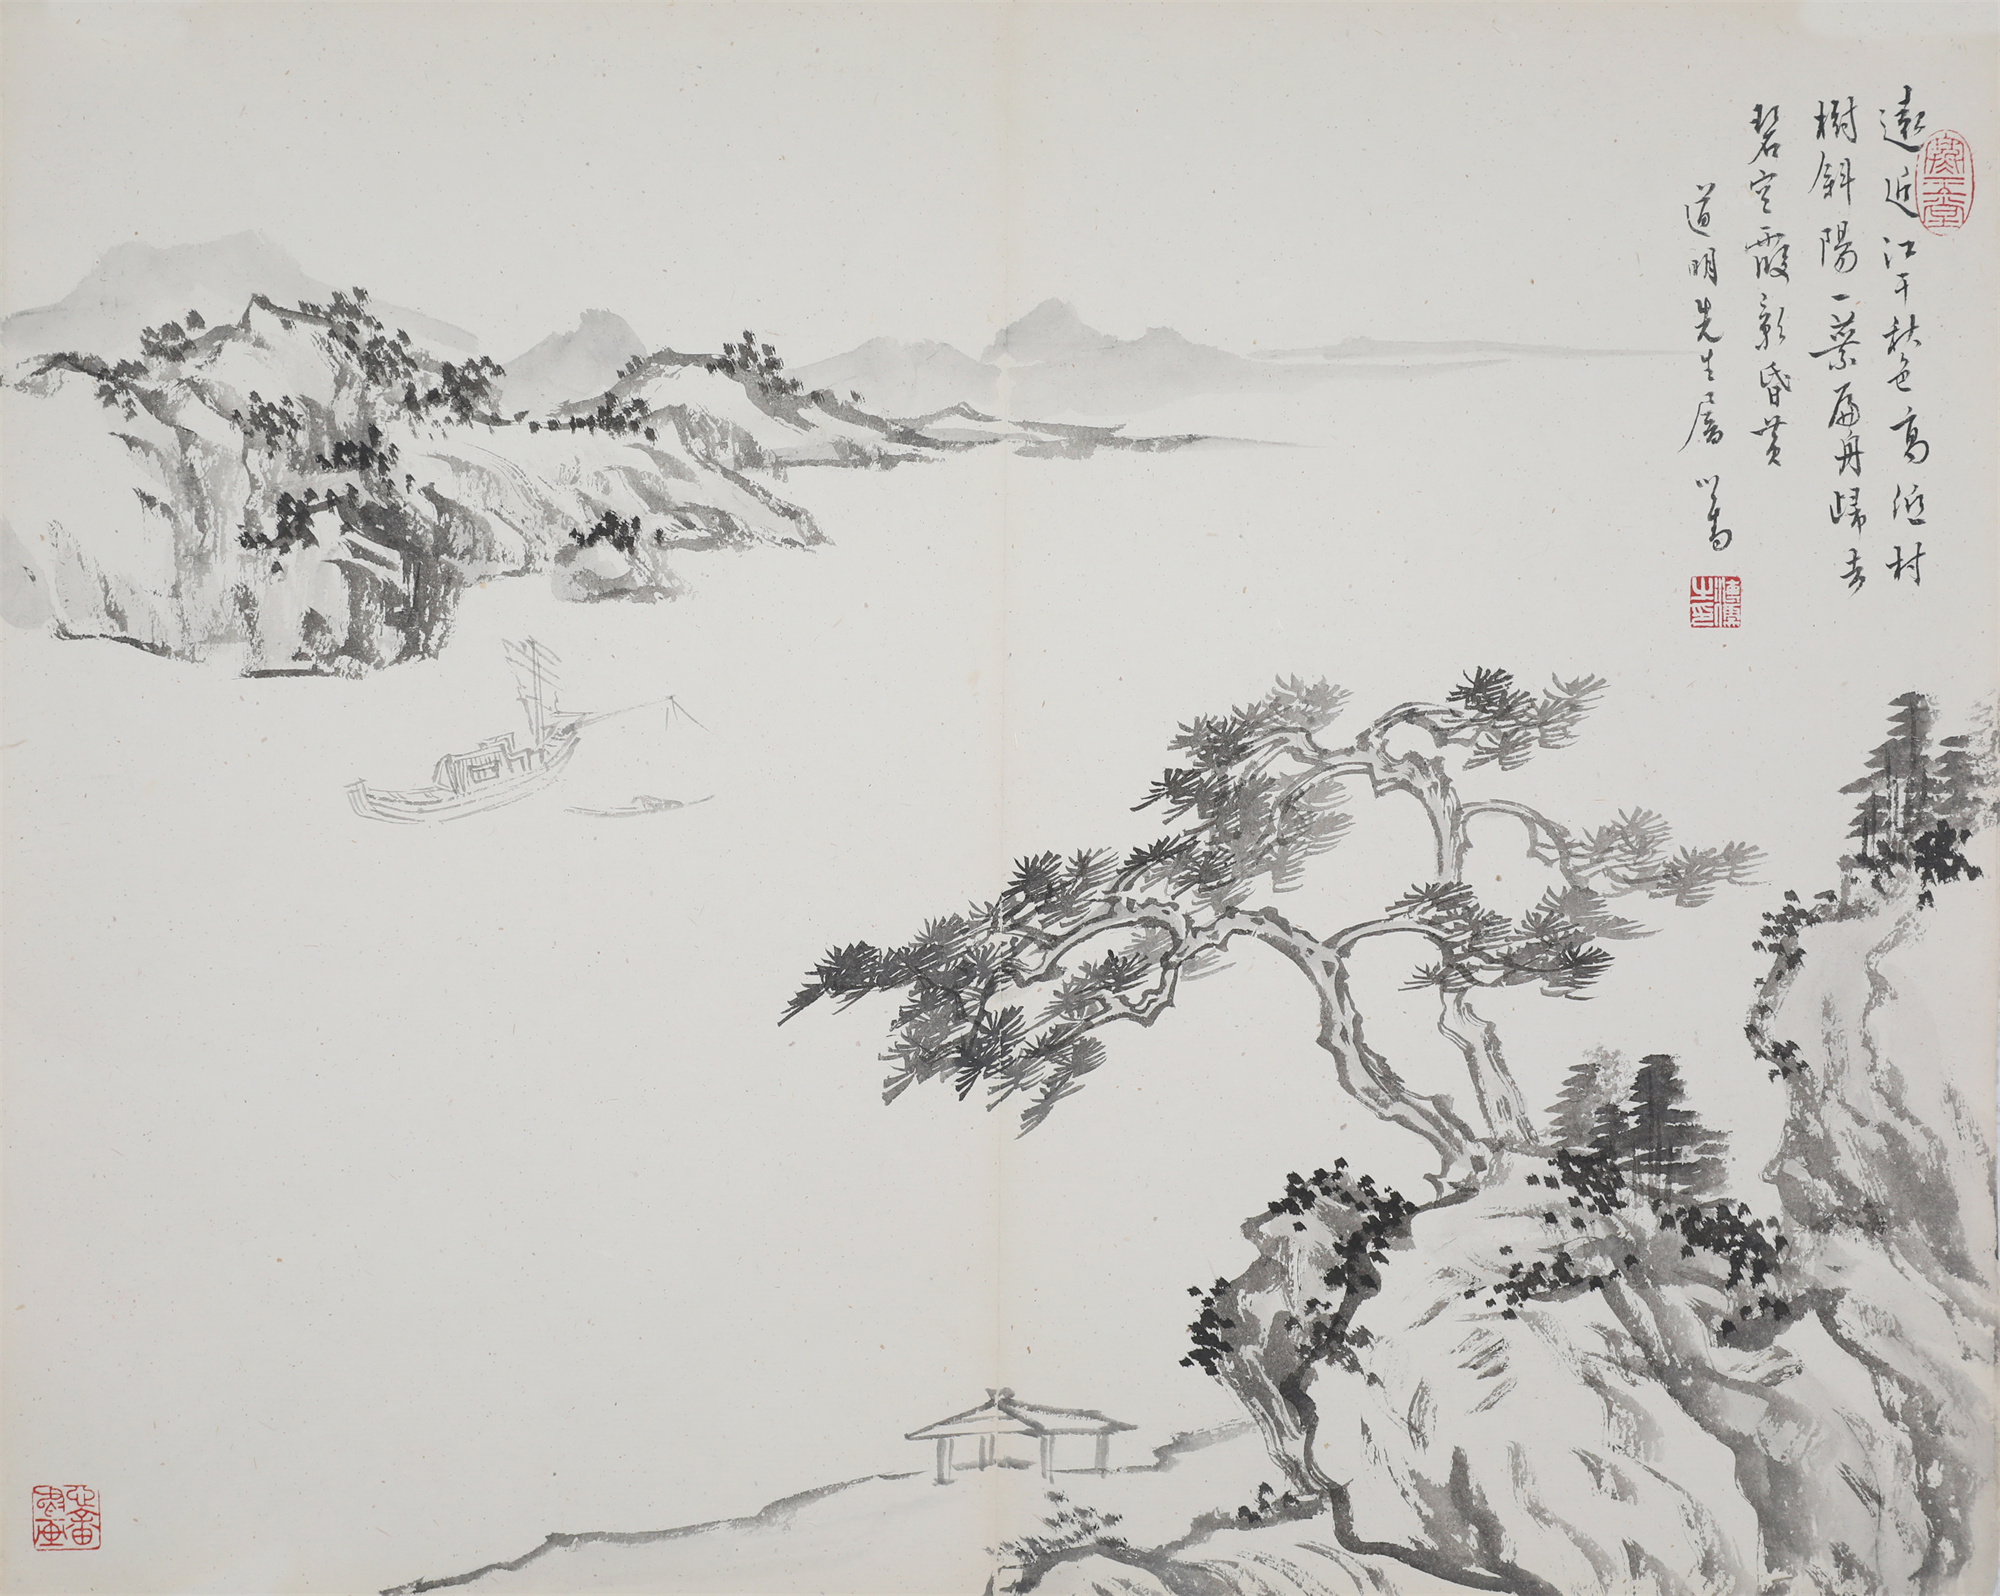 遠近江干秋色高低村
樹斜陽一葉扁舟歸去
碧空霞影昏黃
道明先生屬 心畬
溥儒之印